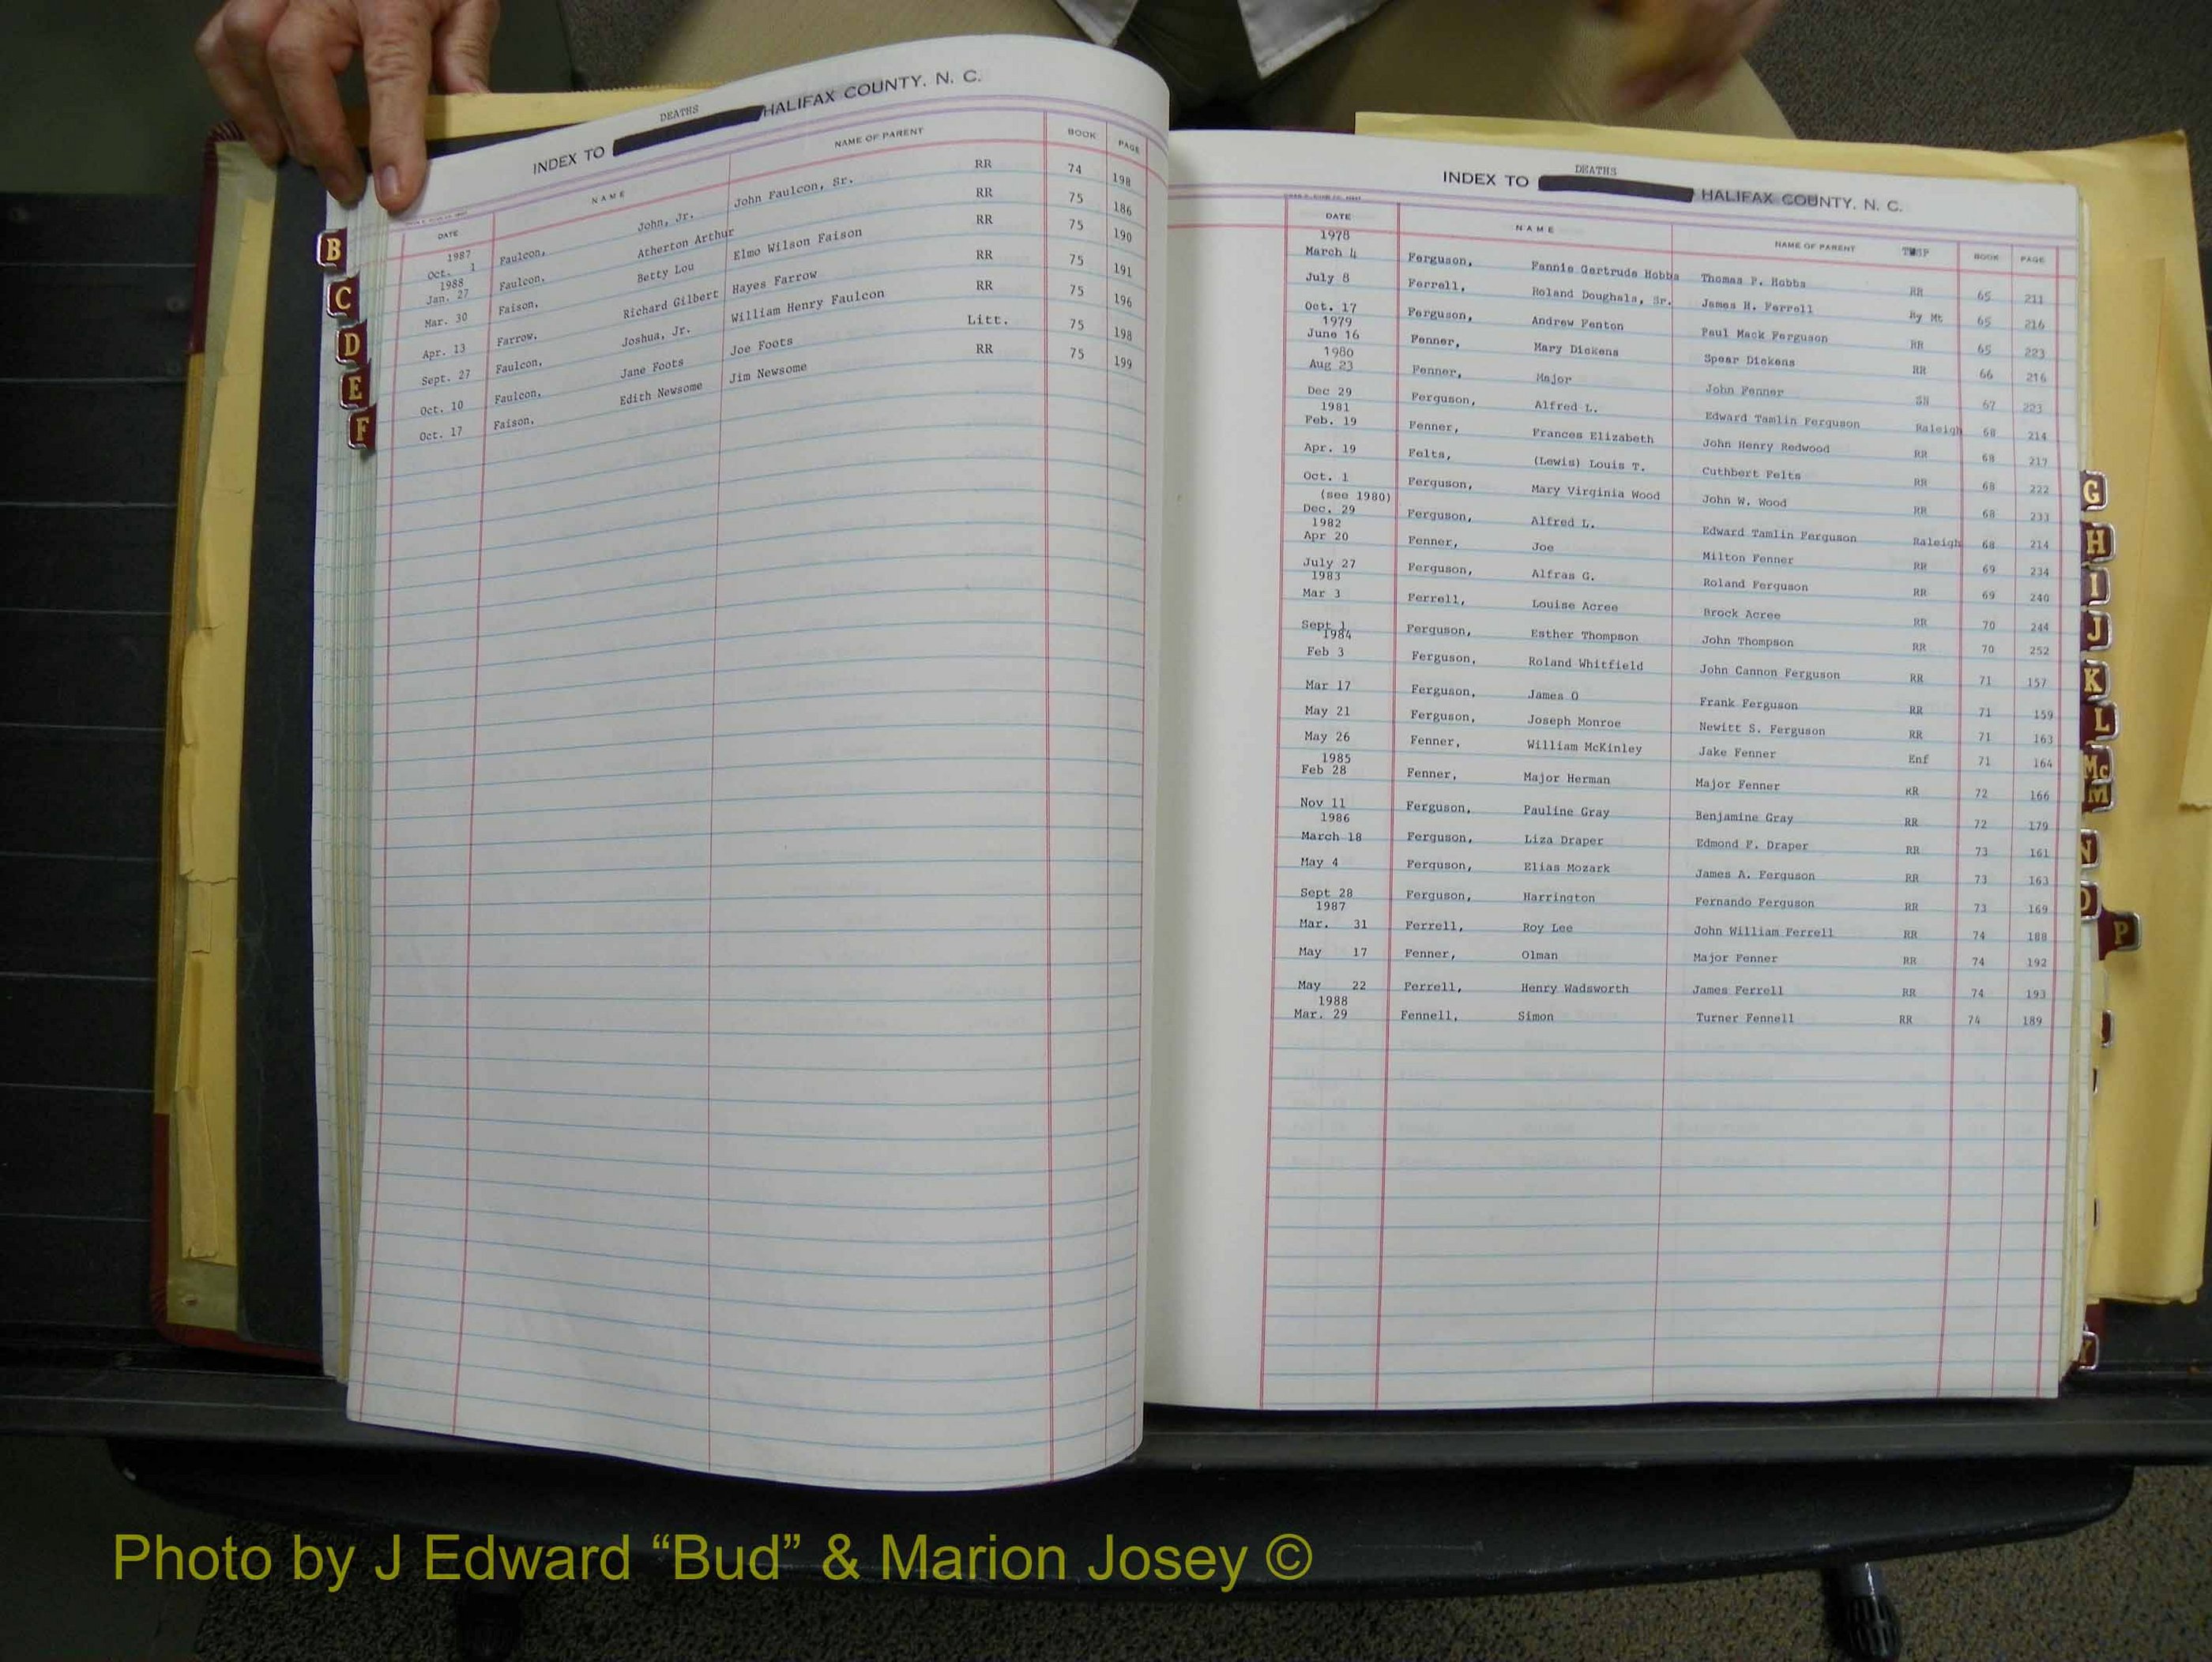 DEATHS
INDEX TO HALIFAX COUNTY, N. C.
DATE NAME NAME OF PARENT BOOK PAGE
1987
Oct. 1 Faulcon, John, Jr. John Faulcon, Sr. RR 74 198
1988
Jan. 27 Faulcon, Atherton Arthur RR 75 186
Mar. 30 Faison, Betty Lou Elmo Wilson Faison RR 75 190
Apr. 13 Farrow, Richard Gilbert Hayes Farrow RR 75 191
Sept. 27 Faulcon, Joshua, Jr. William Henry Faulcon RR 75 196
Oct. 10 Faulcon, Jane Foots Joe Foots Litt. 75 198
Oct. 17 Faison, Edith Newsome Jim Newsome RR 75 199
B
C
D
E
F
DEATHS
INDEX TO HALIFAX COUNTY, N. C.
DATE NAME NAME OF PARENT TWSP BOOK PAGE
1978
March 4 Ferguson, Fannie Gertrude Hobbs Thomas P. Hobbs RR 65 211
July 8 Ferrell, Roland Doughals, Sr. James H. Ferrell Ry Mt 65 216
Oct. 17 Ferguson, Andrew Fenton Paul Mack Ferguson RR 65 223
1979
June 16 Fenner, Mary Dickens Spear Dickens RR 66 216
1980
Aug 23 Fenner, Major John Fenner SN 67 223
Dec 29 Ferguson, Alfred L. Edward Tamlin Ferguson Raleigh 68 214
1981
Feb. 19 Fenner, Frances Elizabeth John Henry Redwood RR 68 217
Apr. 19 Felts, (Lewis) Louis T. Cuthbert Felts RR 68 222
Oct. 1 Ferguson, Mary Virginia Wood John W. Wood RR 68 233
(see 1980)
Dec. 29 Ferguson, Alfred L. Edward Tamlin Ferguson Raleigh 68 214
1982
Apr 20 Fenner, Joe Milton Fenner RR 69 234
July 27 Ferguson, Alfras G. Roland Ferguson RR 69 240
1983
Mar 3 Ferrell, Louise Acree Brock Acree RR 70 244
Sept 1 Ferguson, Esther Thompson John Thompson RR 70 252
1984
Feb 3 Ferguson, Roland Whitfield John Cannon Ferguson RR 71 157
Mar 17 Ferguson, James O Frank Ferguson RR 71 159
May 21 Ferguson, Joseph Monroe Newitt S. Ferguson RR 71 163
May 26 Fenner, William McKinley Jake Fenner Enf 71 164
1985
Feb 28 Fenner, Major Herman Major Fenner RR 72 166
Nov 11 Ferguson, Pauline Gray Benjamine Gray RR 72 179
1986
March 18 Ferguson, Liza Draper Edmond F. Draper RR 73 161
May 4 Ferguson, Elias Mozark James A. Ferguson RR 73 163
Sept 28 Ferguson, Harrington Fernando Ferguson RR 73 169
1987
Mar. 31 Ferrell, Roy Lee John William Ferrell RR 74 188
May 17 Fenner, Olman Major Fenner RR 74 192
May 22 Ferrell, Henry Wadsworth James Ferrell RR 74 193
1988
Mar. 29 Fennell, Simon Turner Fennell RR 74 189
G
H
I
J
K
L
Mc
M
N
O
P
Y
Photo by J Edward “Bud” & Marion Josey ©